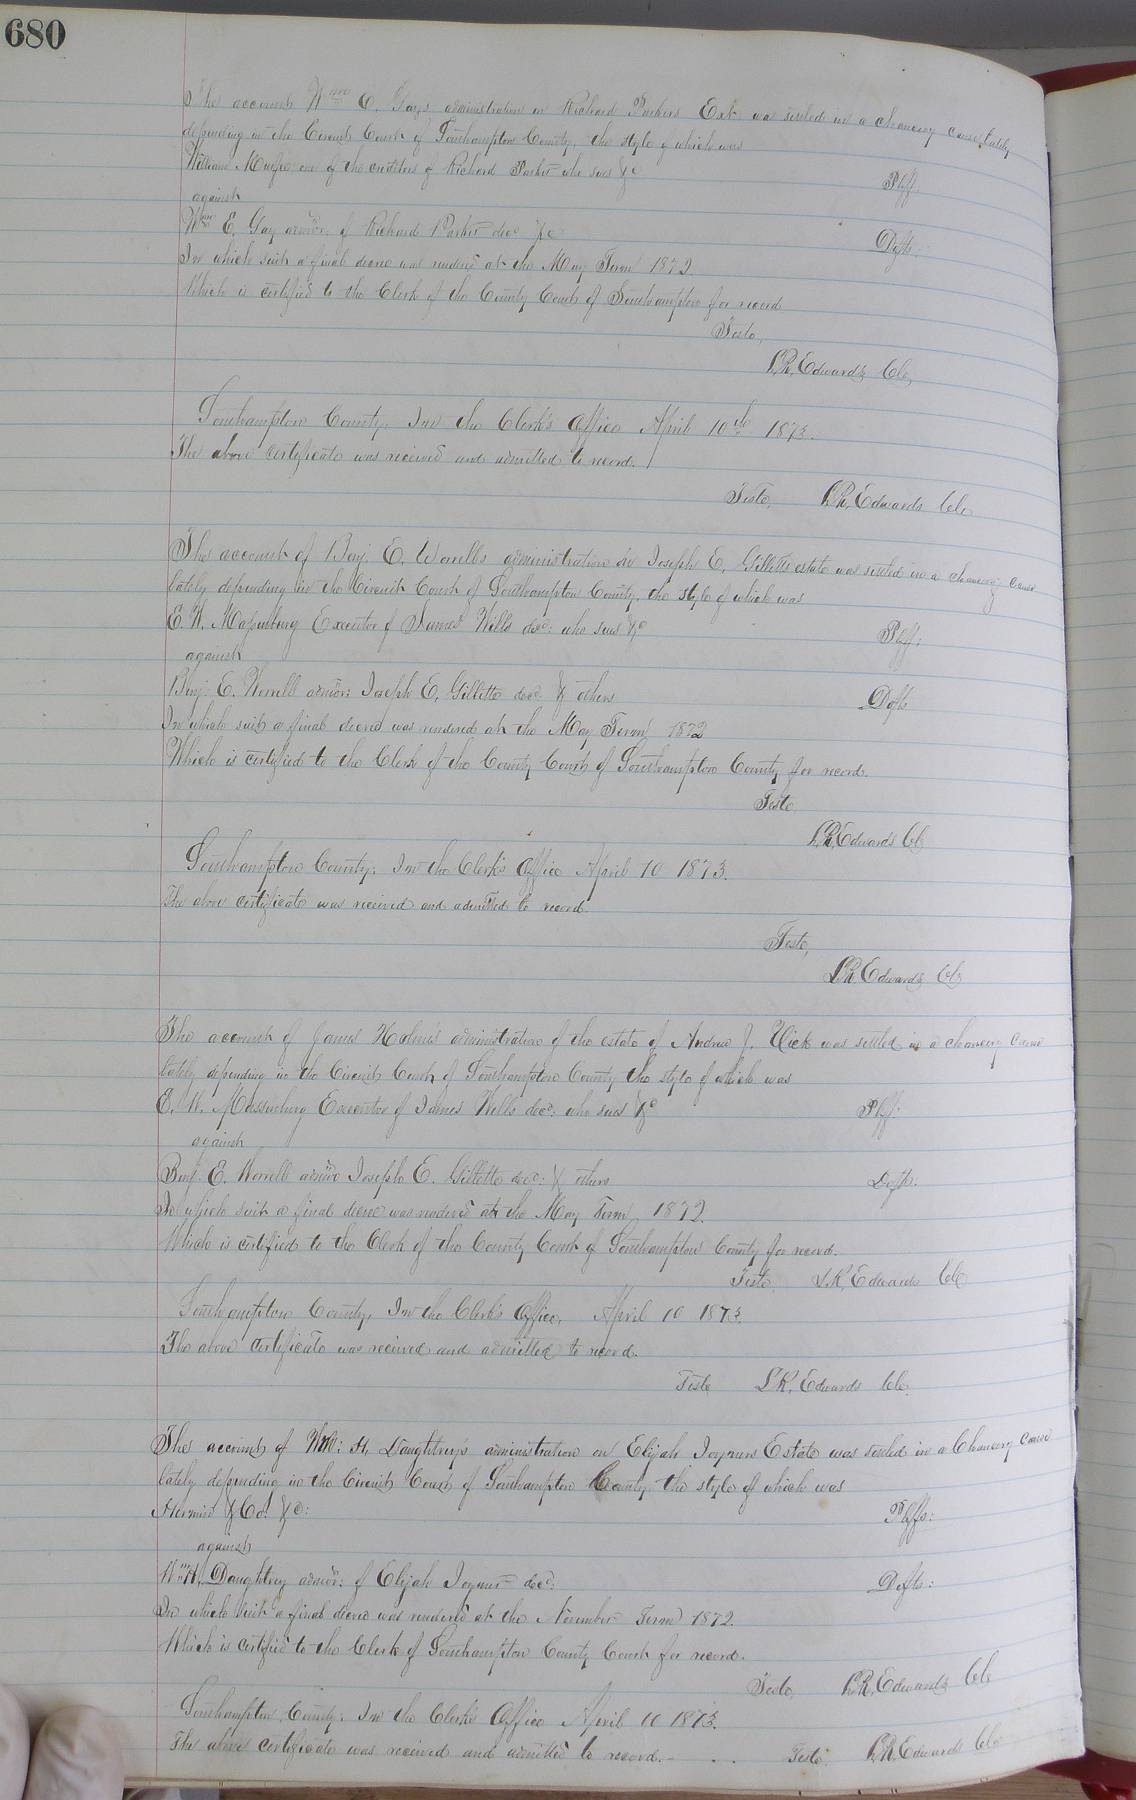 680
The account Wm E. Gays administration on Richard Parkers Est. was settled in a chancery cause lately
depending in the Circuit Court of Southampton County, the style of which was
William one of the creditors of Richard Parker who sues &c Plff.
against
Wm E. Gay admor. of Richard Parker decd &c Defts:
In which suit a final decree was renderd at the May Term 1872
Which is certified to the Clerk of the County Court of Southampton for record
Teste,
L.R. Edwards Clc,
Southampton County: In the Clerk's Office April 10th 1873.
The above certificate was received and admitted to record.
Teste, L.R. Edwards Clc
The account of Benj. E. Worrell's administration on Joseph E. Gilletts estate was settled in a chancery cause
lately depending in the Circuit Court of Southampton County, the style of which was
E. W. Massenburg Executor of James Wills decd: who sues &c Plff:
against
Benj: E. Worrell admor: Joseph E. Gillette decd & others Defts
In which suit a final decree was rendered at the May Term 1872
Which is certified to the Clerk of the County Court of Southampton County for record.
Teste
L.R. Edwards Clc
Southampton County: In the Clerk's Office April 10 1873.
The above certificate was received and admitted to record.
Teste,
L.R. Edwards Clc
The account of James Holmes administration of the estate of Andrew J. was settled in a chancery cause
lately depending in the Circuit Court of Southampton County the style of which was
E. W. Massenburg Executor of James Wells decd: who sues &c Plff:
against
Benj. E. Worrell admor Joseph E. Gillette decd: & others Defts:
In which suit a final decree was renderd at the May Term 1872.
Which is certified to the Clerk of the County Court of Southampton County for record.
Teste L.R. Edwards Clc
Southampton County, In the Clerk's Office, April 10 1873.
The above certificate was received and admitted to record.
Teste L.R. Edwards Clc.
The account of Wm: H. Daughtrey's administration on Elijah Joyners Estate was settled in a Chancery cause
lately depending in the Circuit Court of Southampton County the style of which was
& Co. &c: Plffs:
against
Wm H. Daughtrey admor: of Elijah Joyner decd: Defts:
In which suit a final decree was renderd at the November Term 1872.
Which is certified to the Clerk of Southampton County Court for record.
Teste, L.R. Edwards Clc
Southampton County: In the Clerk's Office April 10 1873.
The above certificate was received and admitted to record. - . . Teste L.R. Edwards Clc